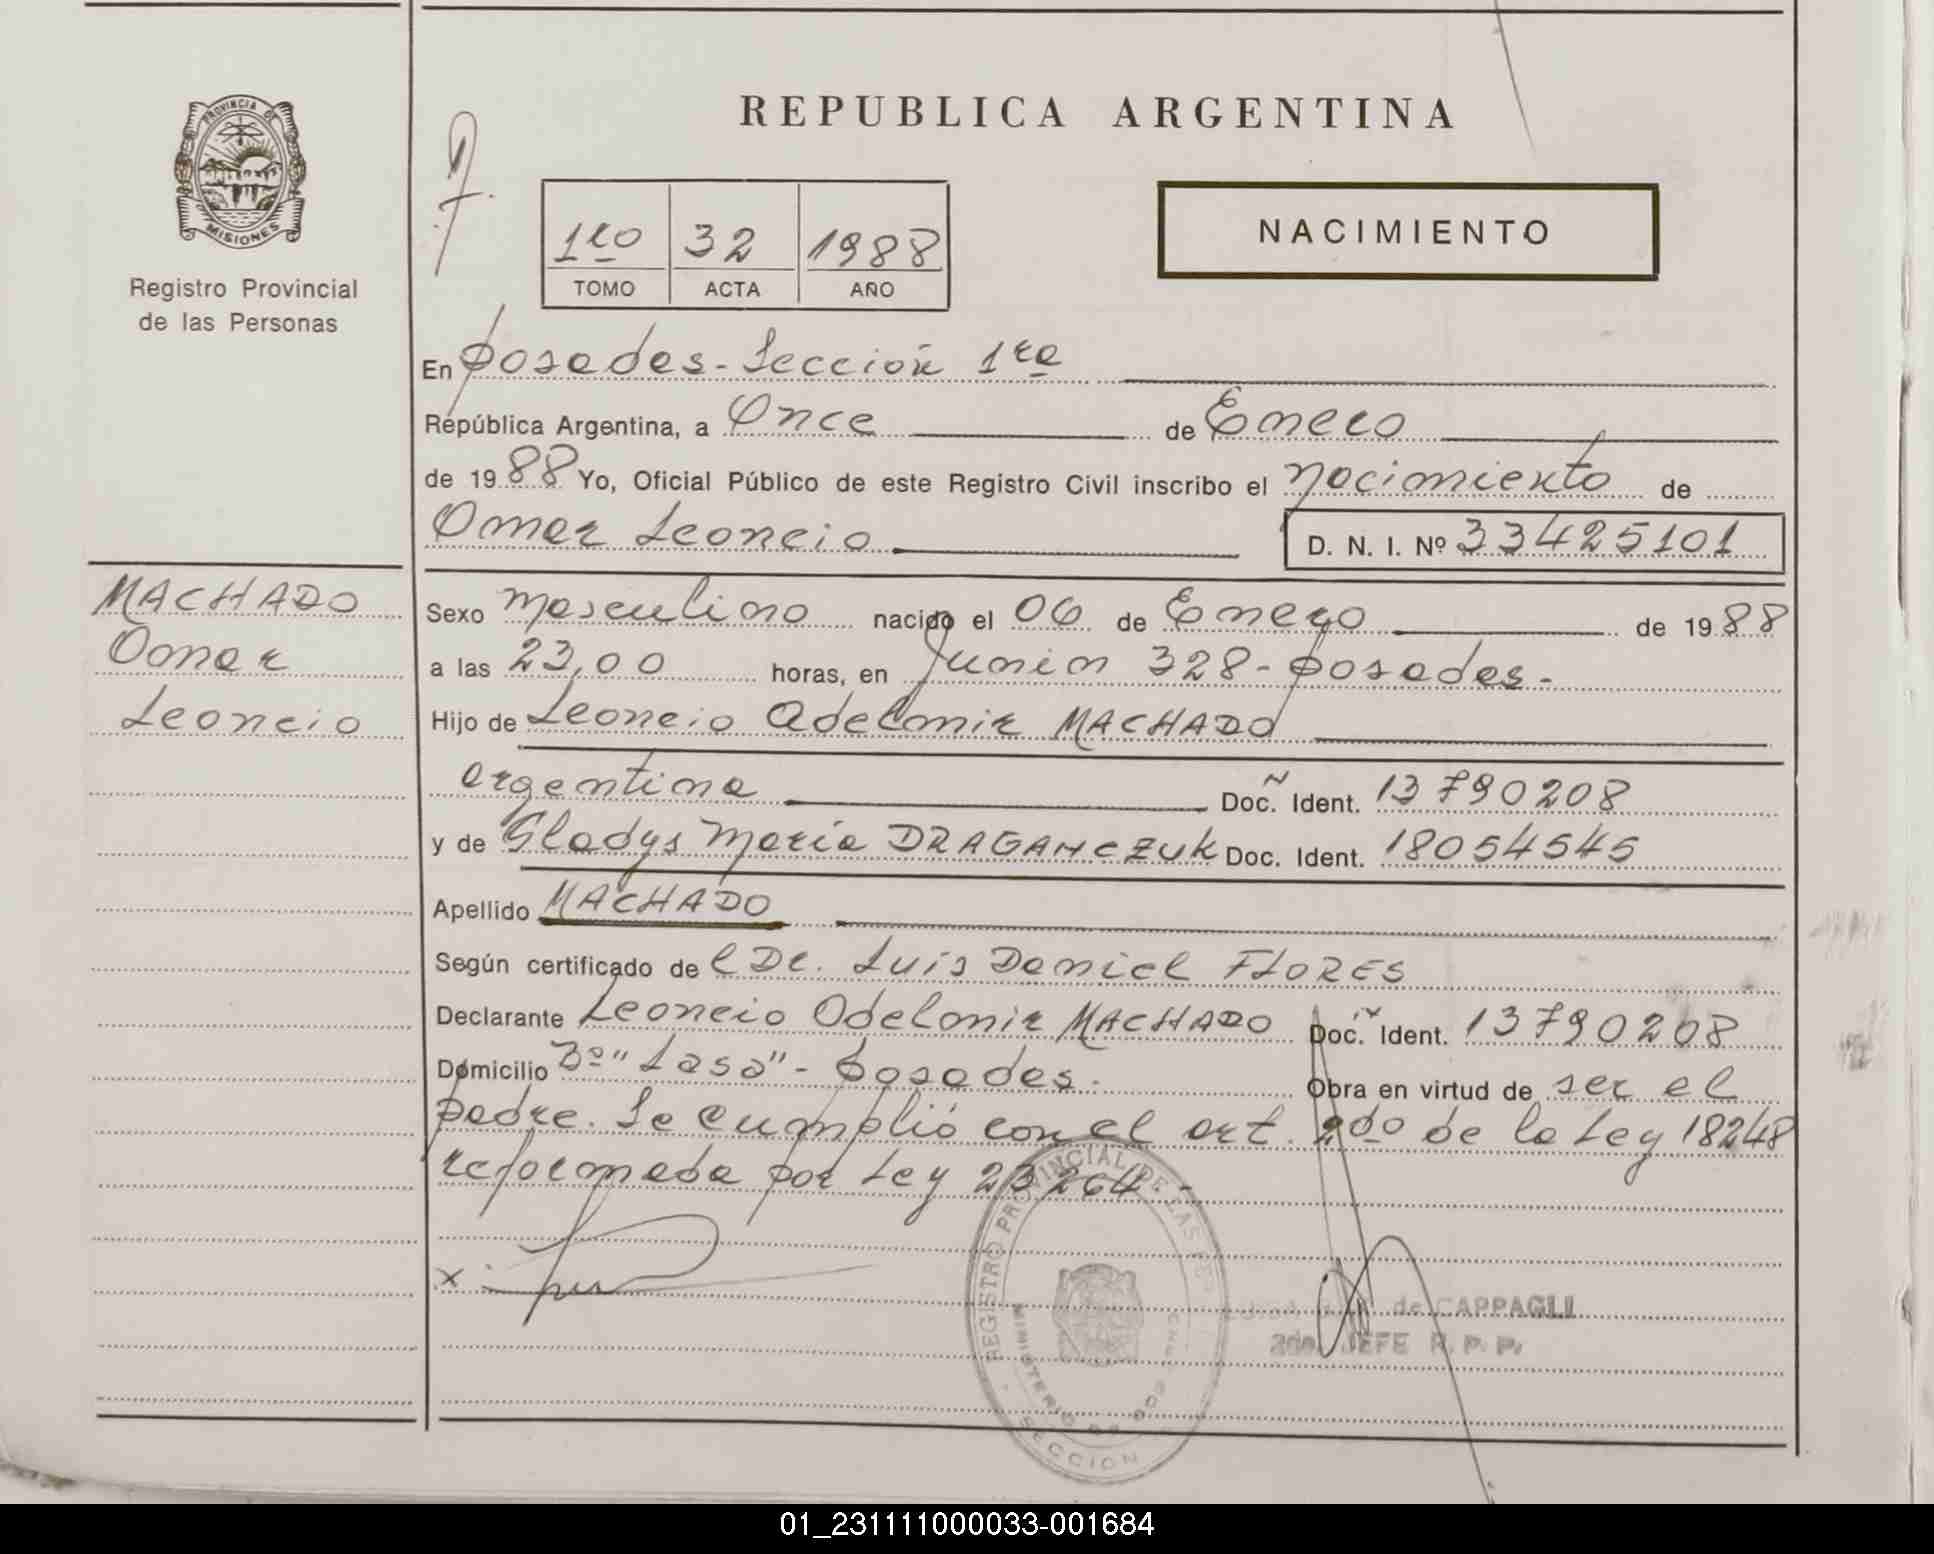 PROVINCIA DE
MISIONES
Registro Provincial
de las Personas
REPUBLICA ARGENTINA
1ro 32 1988
TOMO ACTA AÑO
NACIMIENTO
En Posadas - Sección 1ra
República Argentina, a Once de Enero
de 1988 Yo, Oficial Público de este Registro Civil inscribo el Nacimiento de
Omar Leoncio D. N. I. Nº 33425101
MACHADO
Omar
Leoncio
Sexo Masculino nacido el 06 de Enero de 1988
a las 23,00 horas, en Junin 328 - Posadas.-
Hijo de Leoncio Adelmir MACHADO
argentina Doc. Ident. 13790208
y de Gladys María DRAGANCZUK Doc. Ident. 18054545
Apellido MACHADO
Según certificado de l Dr. Luis Daniel FLORES
Declarante Leoncio Odelmir MACHADO Doc. Ident. 13790208
Domicilio Bº "Sasa" - Posadas. Obra en virtud de ser el
padre. Se cumplió con el art. 2do de la Ley 18248
reformada por Ley 23264.-
REGISTRO PROVINCIAL DE LAS
MINISTERIO DE GOB
SECCION
de CAPPAGLI
2do. JEFE R. P. P.
01_231111000033-001684